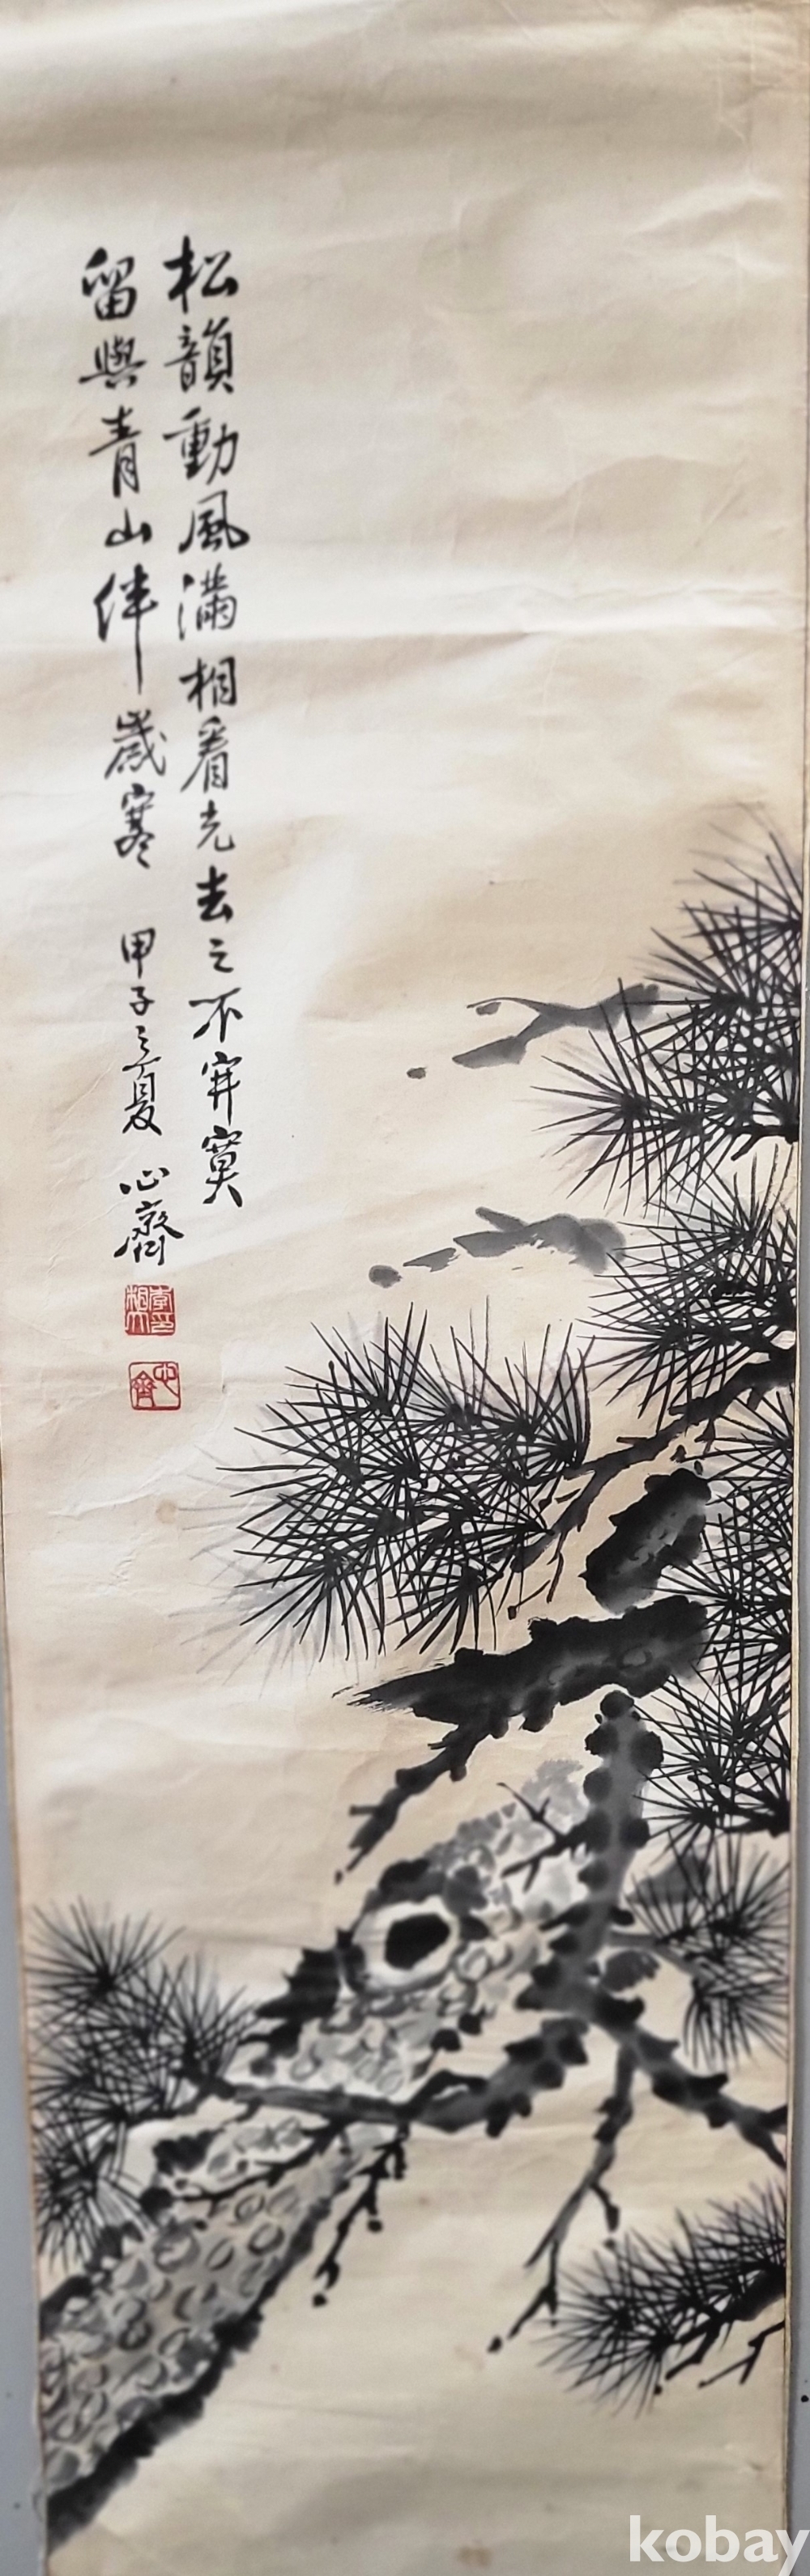 松韻動風滿相看光去之不寂寞
留與青山伴歲寒 甲子之夏 心齋
心齋
kobay